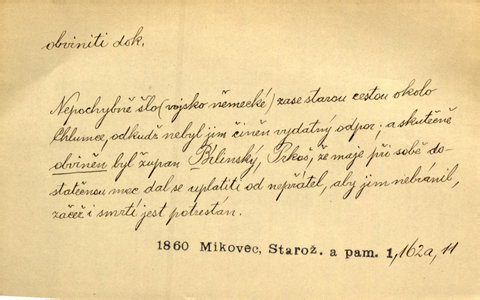 obviniti dok.
Nepochybně šlo (vojsko německé) zase starou cestou okolo
Chlumce, odkudž nebyl jim činěn vydatný odpor; a skutečně
obviněn byl župan Bělinský, Prkoš, že maje při sobě do-
statečnou moc dal se uplatiti od nepřátel, aby jim nebránil,
začež i smrtí jest potrestán.
1860 Mikovec, Starož. a pam. 1, 162a, 11